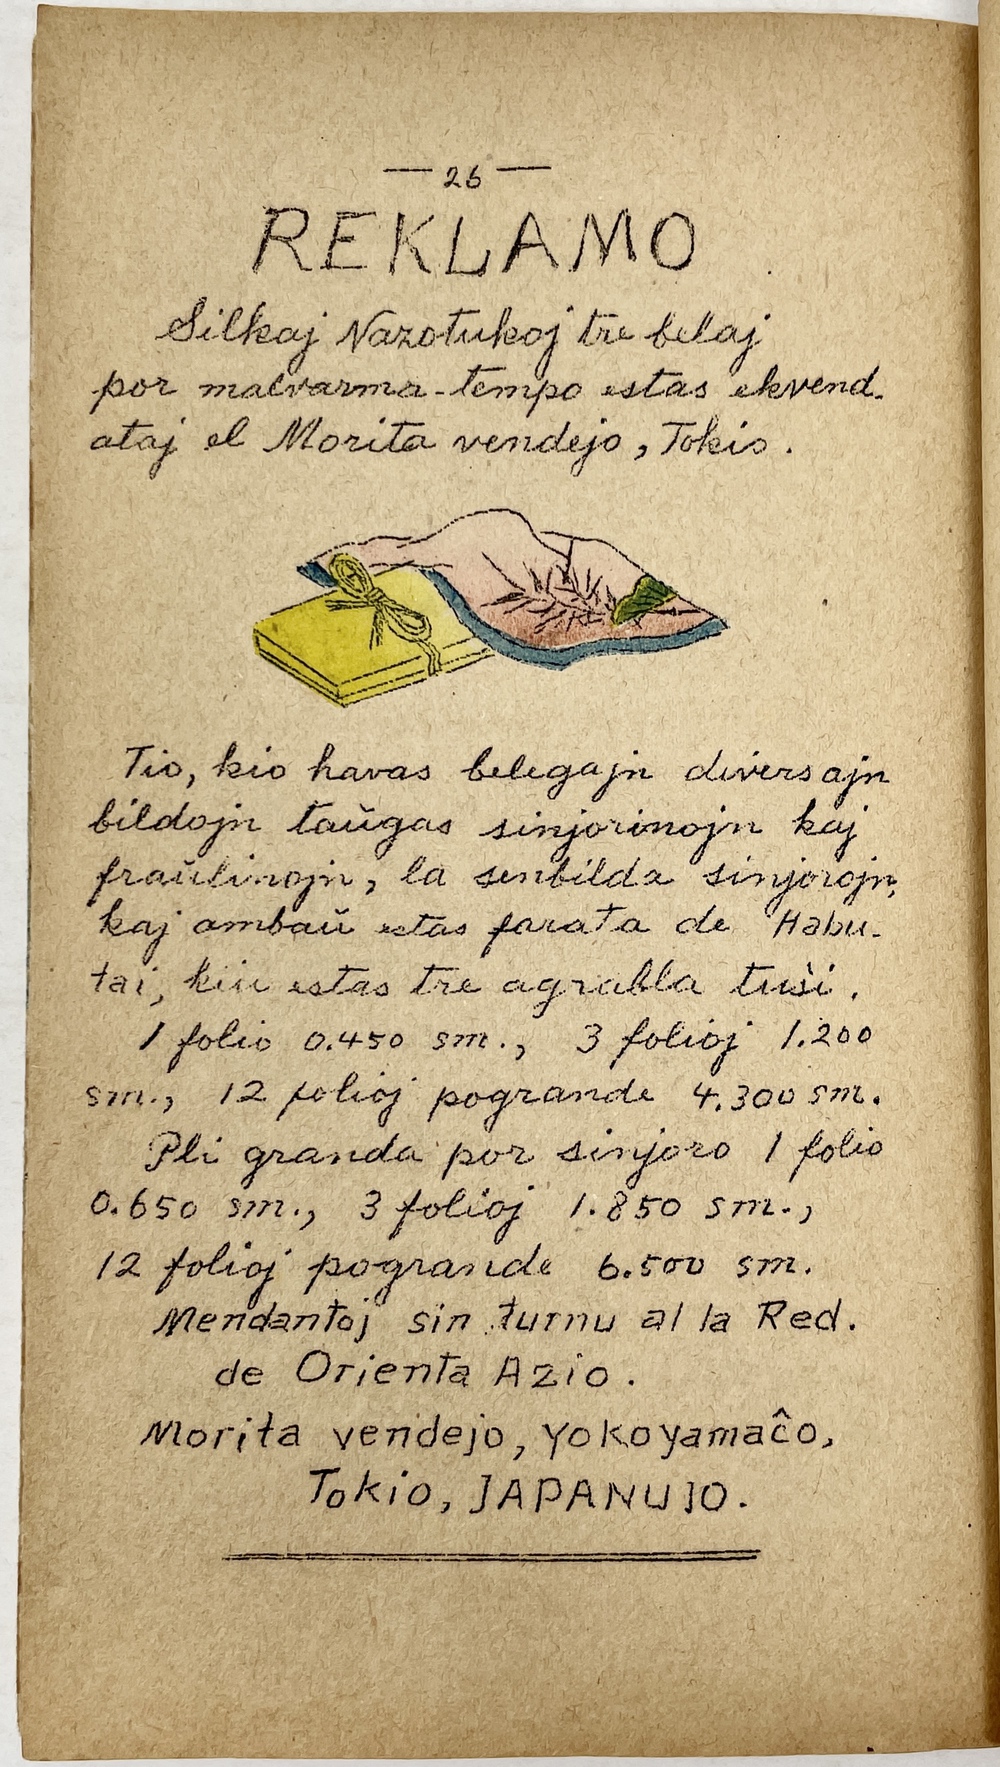 — 26 —
REKLAMO
Silkaj Nazotukoj tre belaj
por malvarma-tempo estas ekvend-
ataj el Morita vendejo, Tokio.
Tio, kio havas belegajn diversajn
bildojn taŭgas sinjorinojn kaj
fraŭlinojn, la senbilda sinjorojn,
kaj ambaŭ estas farata de Habu-
tai, kiu estas tre agrabla tuŝi.
1 folio 0.450 sm., 3 folioj 1.200
sm., 12 folioj pogrande 4.300 sm.
Pli granda por sinjoro 1 folio
0.650 sm., 3 folioj 1.850 sm.,
12 folioj pogrande 6.500 sm.
Mendantoj sin turnu al la Red.
de Orienta Azio.
Morita vendejo, Yokoyamaĉo,
Tokio, JAPANUJO.